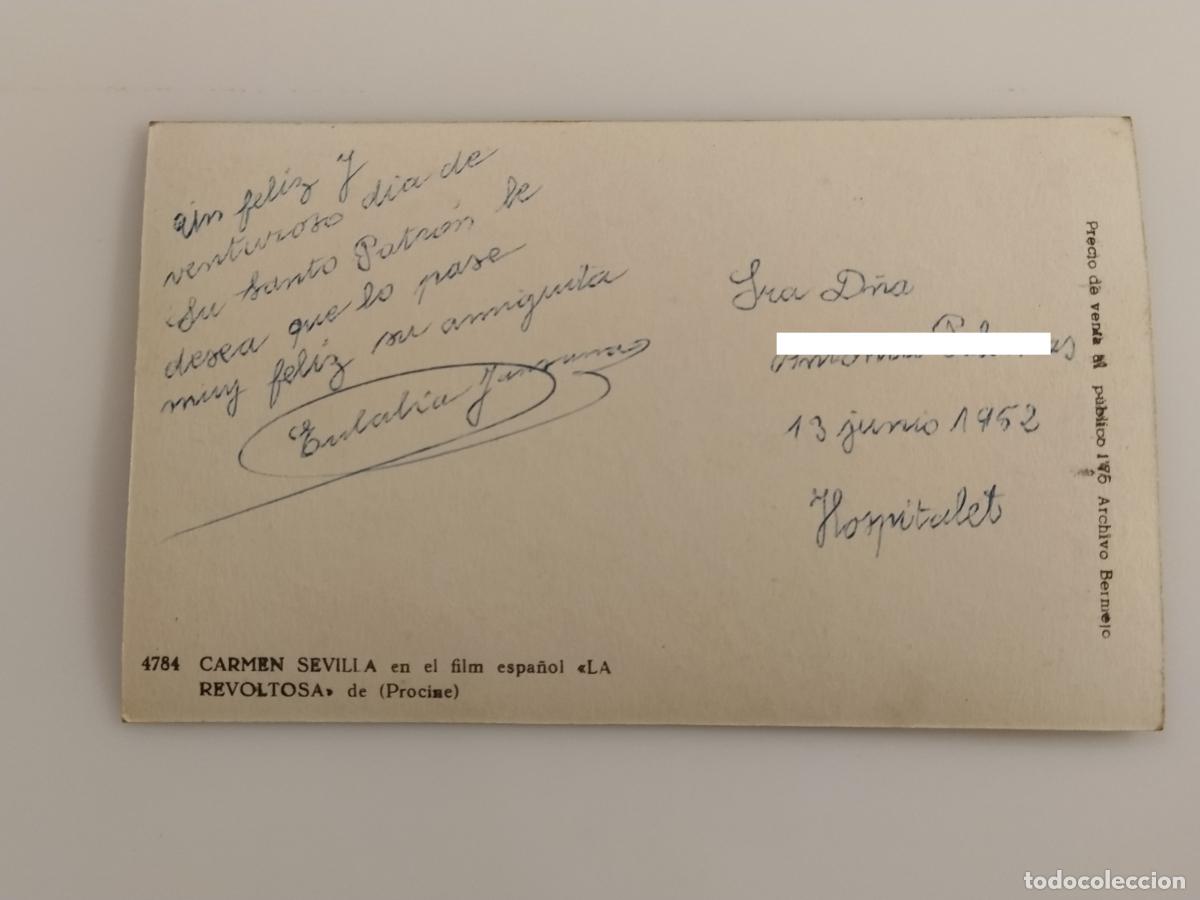 Un feliz y
venturoso dia de
Su Santo Patrón le
desea que lo pase
muy feliz su amiguita
Eulalia
Sra Dña
13 junio 1952
Hospitalet
Precio de venta al público 1'75 Archivo Bermejo
4784 CARMEN SEVILLA en el film español «LA
REVOLTOSA» de (Procine)
todocoleccion